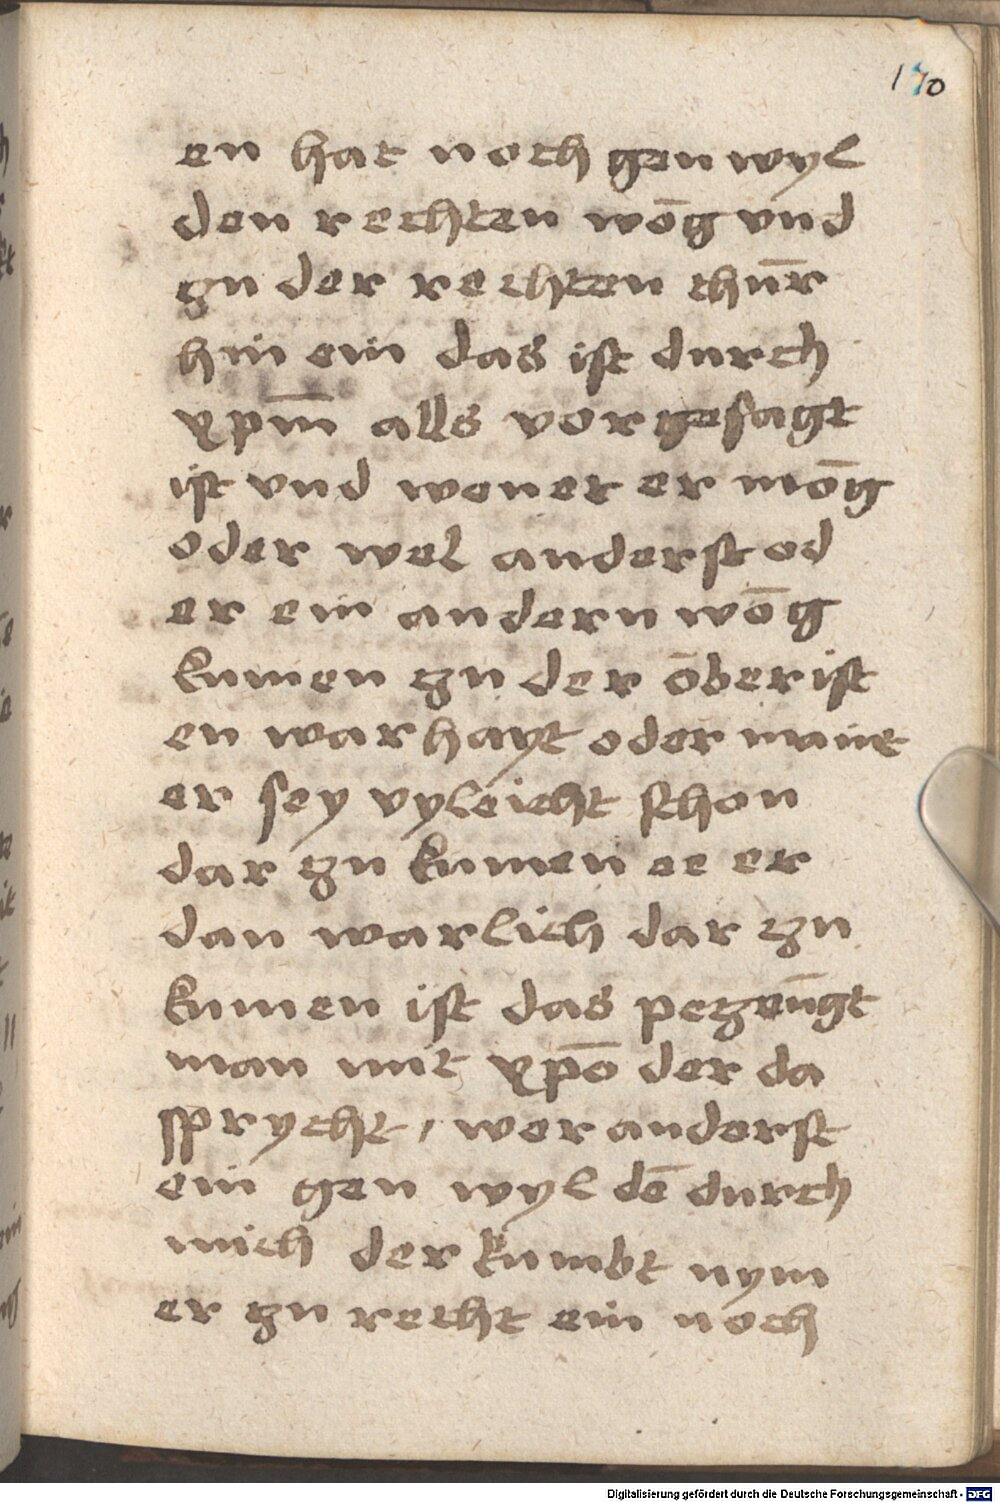 170
en hat noch gen wyl
den rechten wōg vnd
zu der rechten thūr
hin ein das ist durch
xpm̄ alls vor gesagt
ist vnd wener er mōg
oder wel anderst od
er ein andern wōg
kumen zu der ōberist
en warhayt oder maint
er sey vyleicht schon
dar zu kumen ee er
dan warlich dar zu
kumen ist das pezeūgt
man mit xp̄o der da
sprycht, wer anderst
ein gen wyl dē durch
mich der kumbt nym
er zu recht ein noch
Digitalisierung gefördert durch die Deutsche Forschungsgemeinschaft - DFG